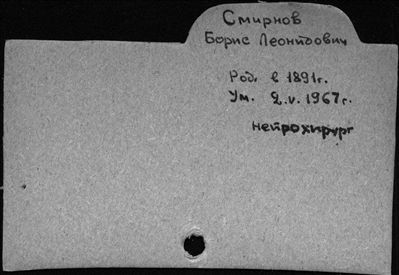 Смирнов
Борис Леонидович
Род. в 1891г.
Ум. 2.V.1967г.
нейрохирург